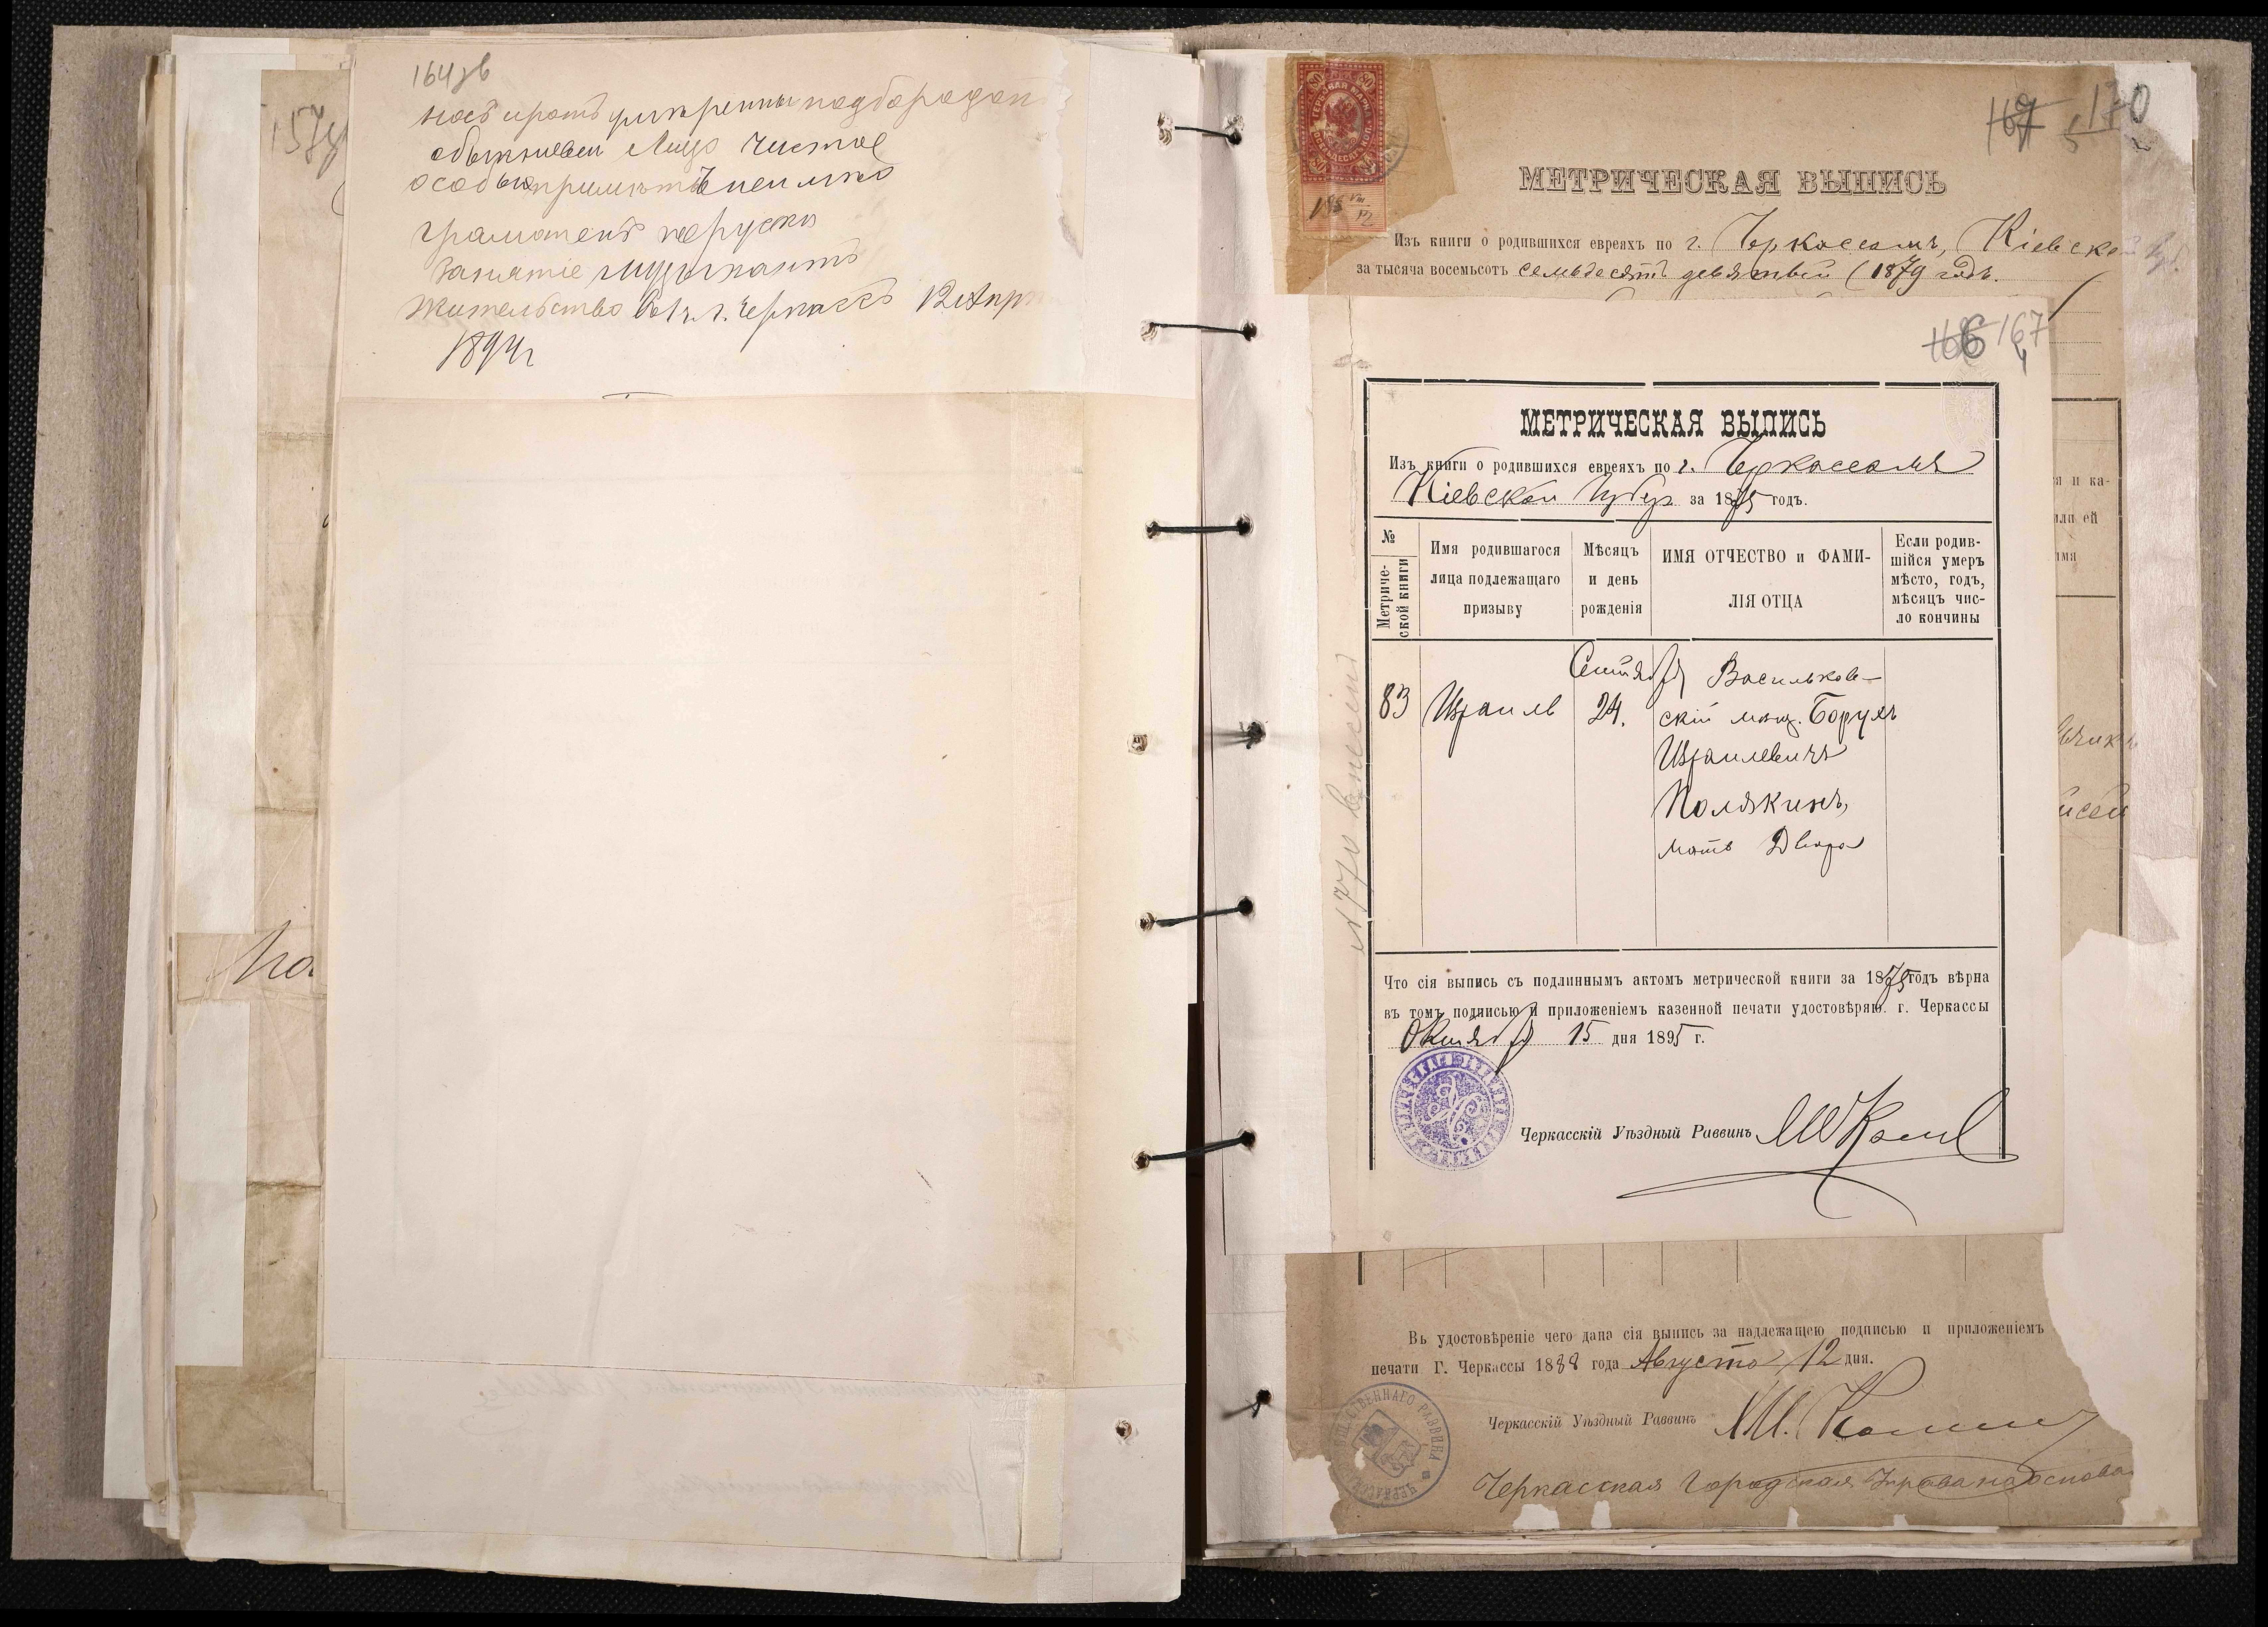 164 зв
носъ и ротъ умѣренны подбородок
обыкновен Лицо чистое
особых примѣтъ не имѣю
грамотенъ поруски
занятіе музыкантъ
жительство въ г. Черкасс 12 Апр
1894 г
157
По
80
ГЕРБОВАЯ МАРКА
167 170
5
МЕТРИЧЕСКАЯ ВЫПИСЬ
Изъ книги о родившихся евреяхъ по г. Черкассамъ, Кіевской Губ.
за тысяча восемьсотъ семьдесятъ девятый (1879 годъ.
166 167
4
МЕТРИЧЕСКАЯ ВЫПИСЬ
Изъ книги о родившихся евреяхъ по г. Черкассамъ
Кіевской Губер за 1875 годъ.
№ Метриче-ской книги
Имя родившагося лица подлежащаго призыву
Мѣсяцъ и день рожденія
ИМЯ ОТЧЕСТВО и ФАМИ-ЛІЯ ОТЦА
Если родив-шійся умеръ мѣсто, годъ, мѣсяцъ чис-ло кончины
Сентября Васильков-
83 Израиль 24. скій мѣщ. Борухъ
Израилевичъ
Полякинъ,
мать Двора
я и ка-
или ей
имя
Что сія выпись съ подлиннымъ актомъ метрической книги за 1875 годъ вѣрна
въ томъ подписью и приложеніемъ казенной печати удостовѣряю. г. Черкассы
Октября 15 дня 1895 г.
Черкасскій Уѣздный Раввинъ
Въ удостовѣреніе чего дана сія выпись за надлежащею подписью и приложеніемъ
печати Г. Черкассы 1888 года Августа 12 дня.
Черкасскій Уѣздный Раввинъ
ОБЩЕСТВЕННАГО РАВВИНА
Черкасская Городская Управа на основа